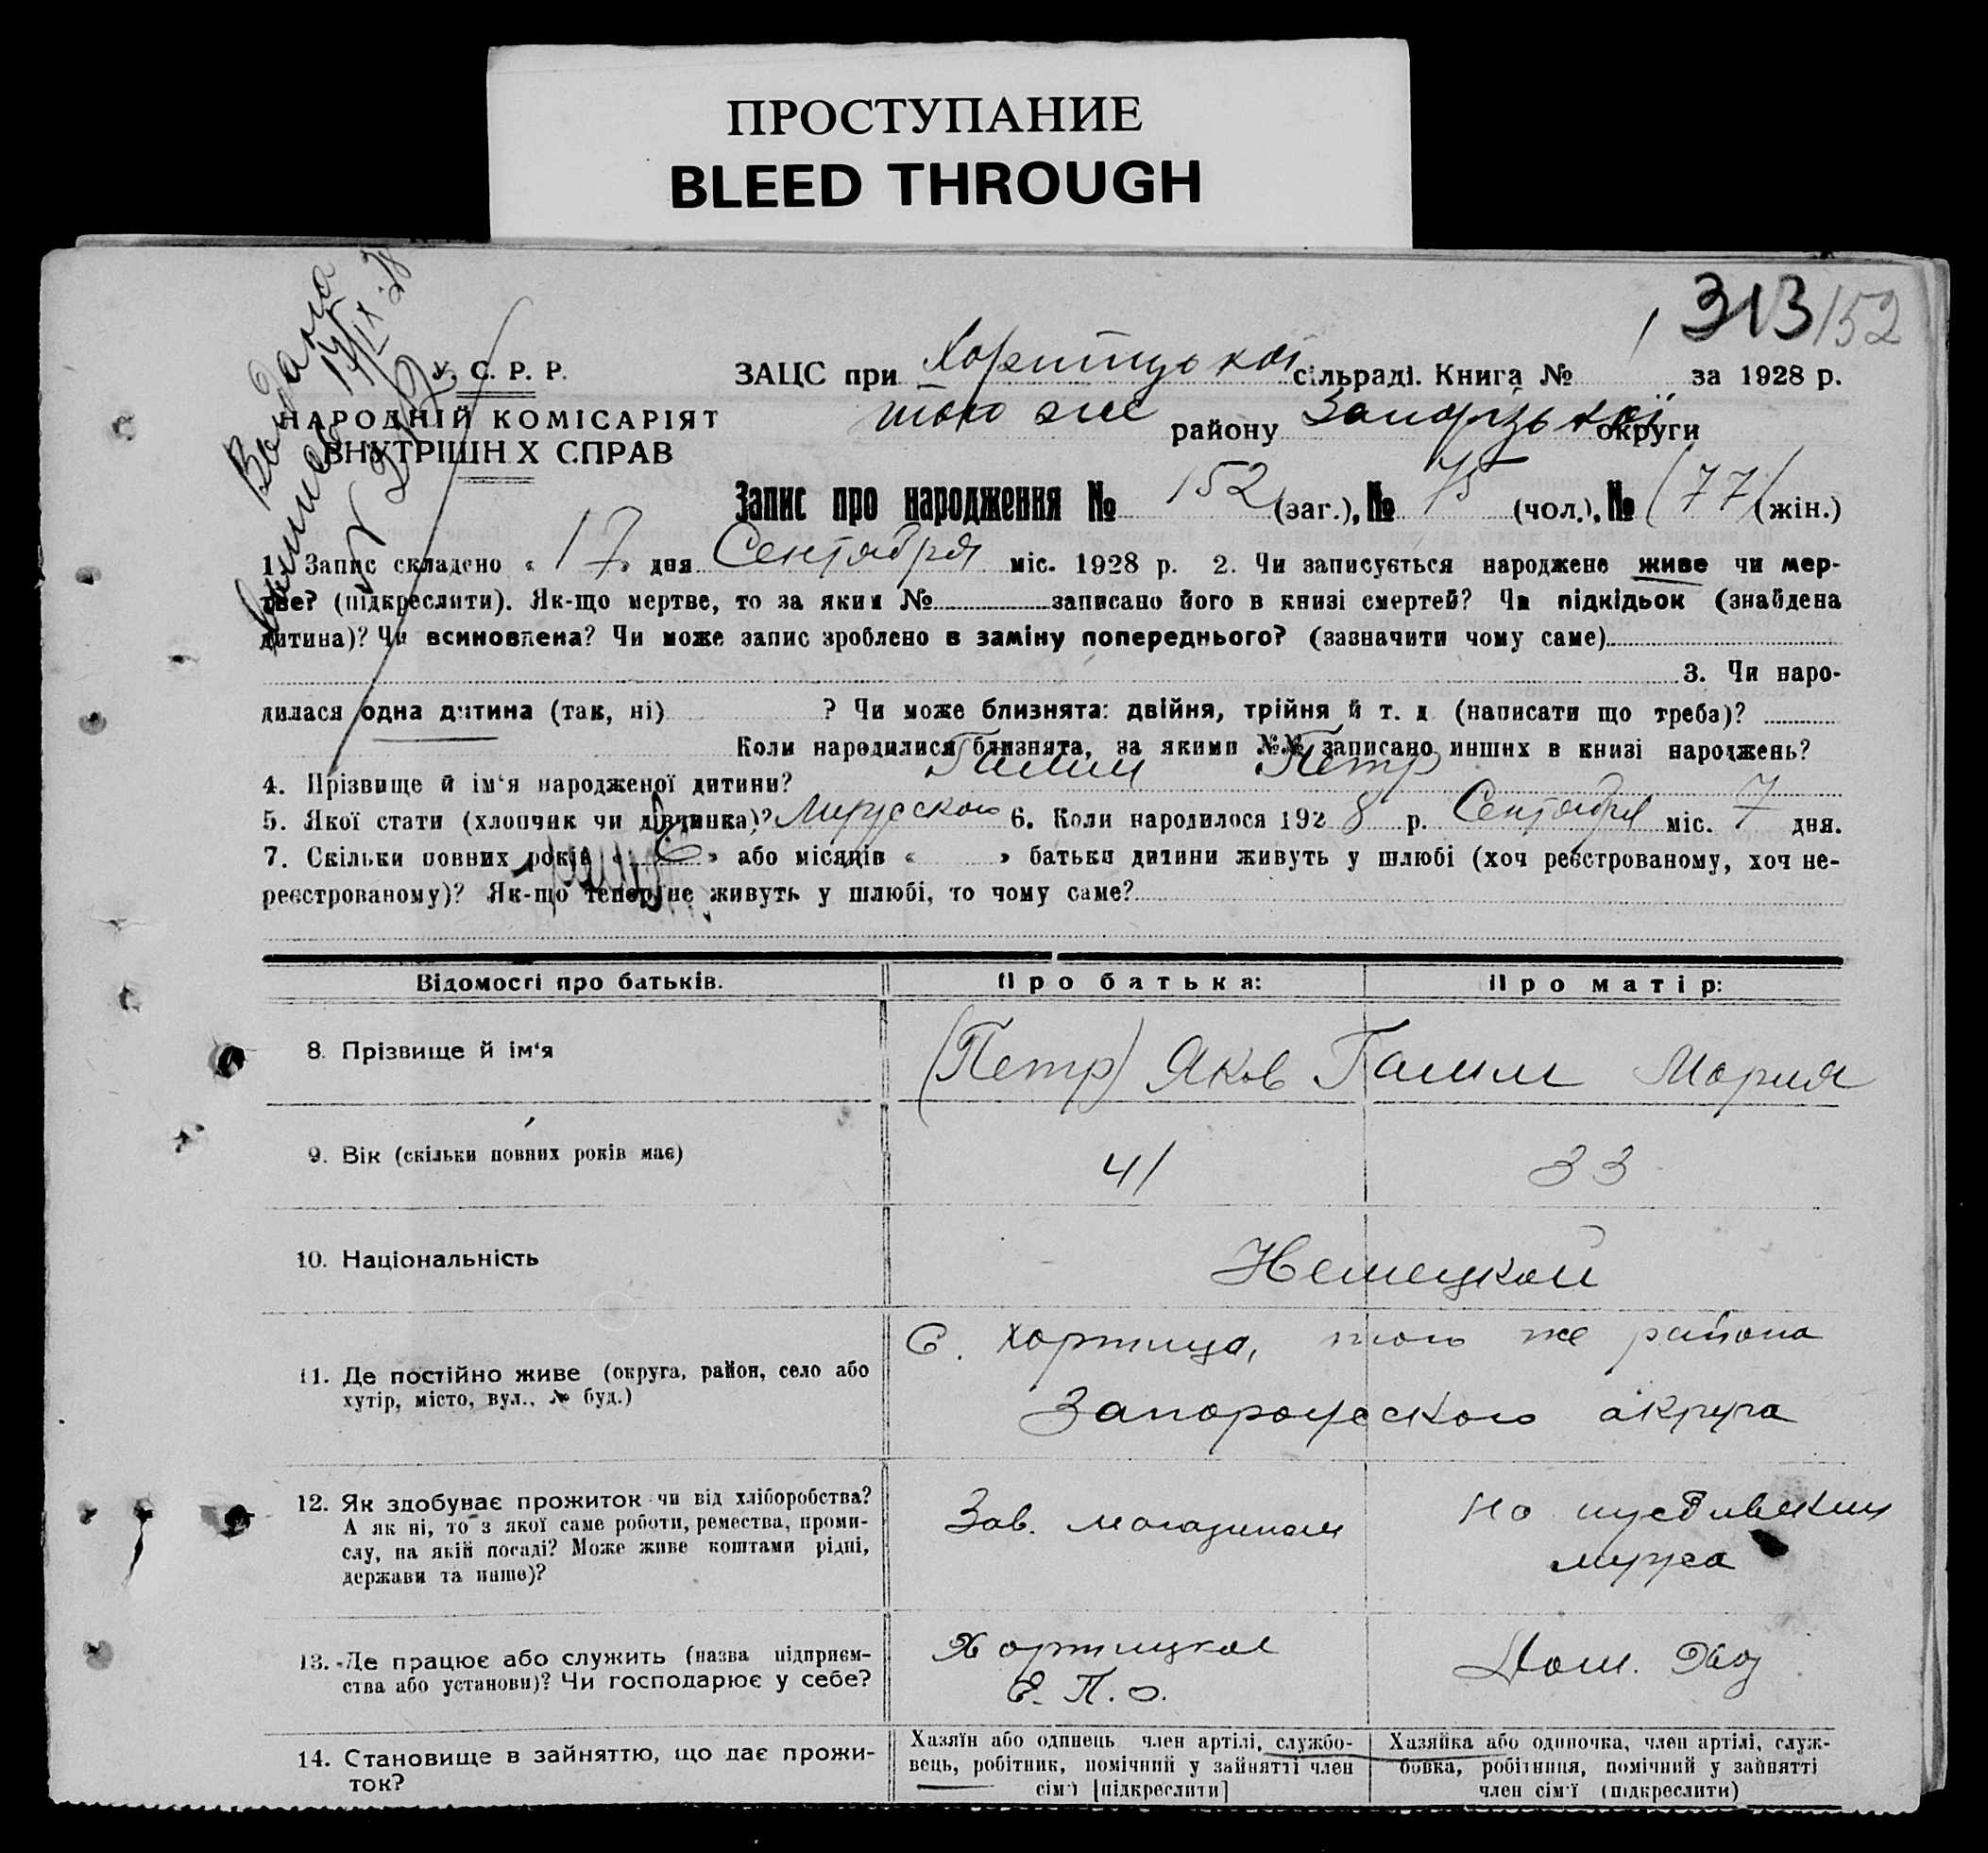 ПРОСТУПАНИЕ
BLEED THROUGH
313/152
Видана 17/IX 28
У. С. Р. Р.
НАРОДНІЙ КОМІСАРІЯТ
ВНУТРІШН Х СПРАВ
ЗАЦС при Хортицької сільраді. Книга № за 1928 р.
того же району Запорізької округи
Запис про народження № 152 (заг.), № 75 (чол.), № (77) (жін.)
1. Запис складено « 17 » дня Сентября міс. 1928 р. 2. Чи записується народжене живе чи мер-
тве? (підкреслити). Як-що мертве, то за яким № записано його в книзі смертей? Чи підкідьок (знайдена
дитина)? Чи всиновлена? Чи може запис зроблено в заміну попереднього? (зазначити чому саме)
3. Чи наро-
дилася одна дитина (так, ні) ? Чи може близнята: двійня, трійня й т. д. (написати що треба)?
Коли народилися близнята, за якими №№ записано инших в книзі народжень?
4. Прізвище й ім‘я народженої дитини? Гамм Петр
5. Якої стати (хлопчик чи дівчинка)? Мужского 6. Коли народилося 192 8 р. Сентября міс. 7 дня.
7. Скільки повних років « » або місяців « » батьки дитини живуть у шлюбі (хоч реєстрованому, хоч не-
реєстрованому)? Як-що тепер не живуть у шлюбі, то чому саме?
Відомості про батьків. Про батька: Про матір:
8. Прізвище й ім‘я (Петр) Яков Гамм Мария
9. Вік (скільки повних років має) 41 33
10. Національність Немецкой
11. Де постійно живе (округа, район, село або
хутір, місто, вул., № буд.)
С. Хортица, того же района
Запорожского округа
12. Як здобуває прожиток чи від хліборобства?
А як ні, то з якої саме роботи, ремества, проми-
слу, на якій посаді? Може живе коштами рідні,
держави та инше)?
Зав. магазином
На иждивении
мужа
13. Де працює або служить (назва підприєм-
ства або установи)? Чи господарює у себе?
Хортицкое
Е. П. О.
Дом. Хоз
14. Становище в зайняттю, що дає прожи-
ток?
Хазяїн або одинець член артілі, службо-
вець, робітник, помічний у зайнятті член
сім‘ї [підкреслити]
Хазяйка або одиночка, член артілі, служ-
бовка, робітниця, помічний у зайнятті
член сім‘ї (підкреслити)